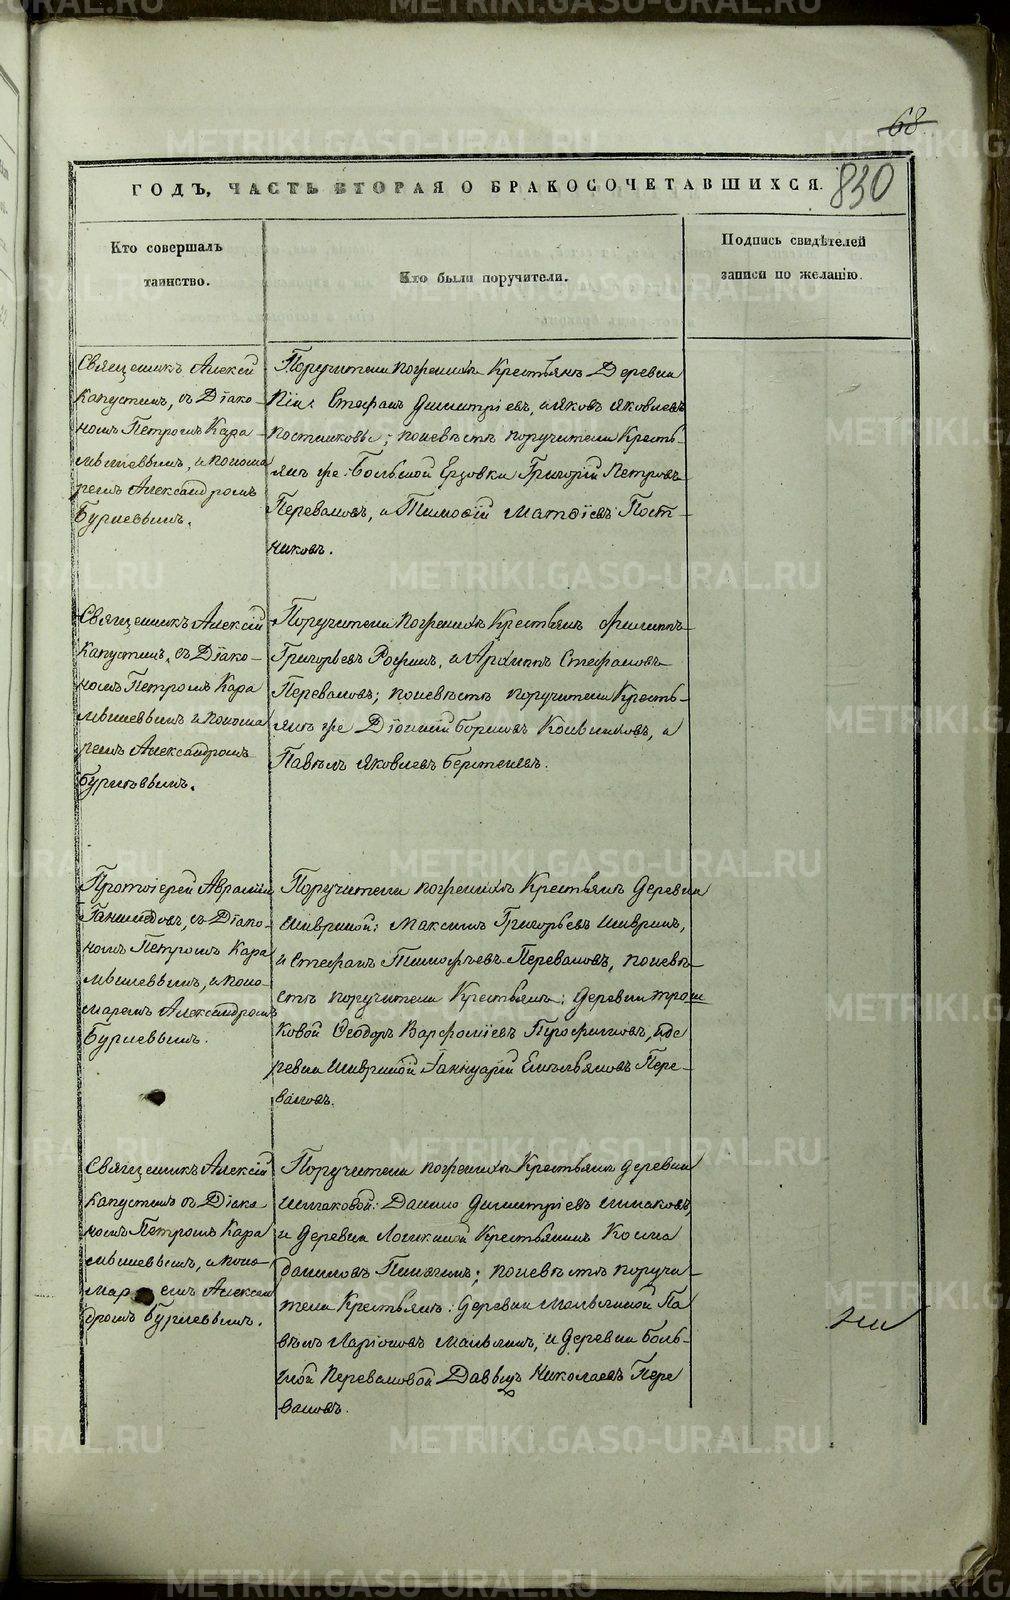 68
830
ГОДЪ, ЧАСТЬ ВТОРАЯ О БРАКОСОЧЕТАВШИХСЯ.
Кто совершалъ
таинство.
Кто были поручители.
Подпись свидѣтелей
записи по желанію.
Священникъ Алексій
Капустинъ, съ Діако-
номъ Петромъ Кара
мышевымъ, и понома
ремъ Александромъ
Бурневымъ.
Поручители по женихѣ Крестьяне Деревни
Стефанъ Димитріевъ, и Яковъ Яковлевъ
Постниковы; по невѣстѣ поручители Кресть-
яне же: Большой Ерзовки Григорій Петровъ
Переваловъ, и Тимоѳій Матѳіевъ Пост-
никовъ.
Священникъ Алексій
Капустинъ, съ Діако-
номъ Петромъ Кара
мышевымъ и понома
ремъ Александромъ
Бурневымъ.
Поручители по женихѣ Крестьяне Филиппъ
Григорьевъ и Архиппъ Стефановъ
Переваловъ; по невѣстѣ поручители Кресть-
яне же Діонисій Борисовъ и
Павелъ Яковлевъ
Протоіерей Авраамій
съ Діако-
номъ Петромъ Кара
мышевымъ, и поно-
маремъ Александромъ
Бурневымъ.
Поручители по женихѣ Крестьяне Деревни
Шавриной: Максимъ Григорьевъ Шавринъ,
и Стефанъ Тимофѣевъ Переваловъ, по невѣ-
стѣ поручители Крестьяне: деревни Трош
ковой Ѳеодоръ Варфоліевъ и де
ревни Шавриной Іаннуарій Емельяновъ Пере-
валовъ.
Священникъ Алексій
Капустинъ съ Діако
номъ Петромъ Кара
мышевымъ, и поно-
маремъ Алексан
дромъ Бурневымъ.
Поручители по женихѣ Крестьяне деревни
Шмаковой: Данило Димитріевъ Шмаковъ,
и Деревни Лошкиной Крестьянинъ Косма
Даниловъ Пинягинъ; по невѣстѣ поручи-
тели Крестьяне: деревни Маньлиной Па
велъ Ларіоновъ Маньлинъ, и деревни Боль-
шой Переваловой Давыдъ Николаевъ Пере
валовъ.
METRIKI.GASO-URAL.RU